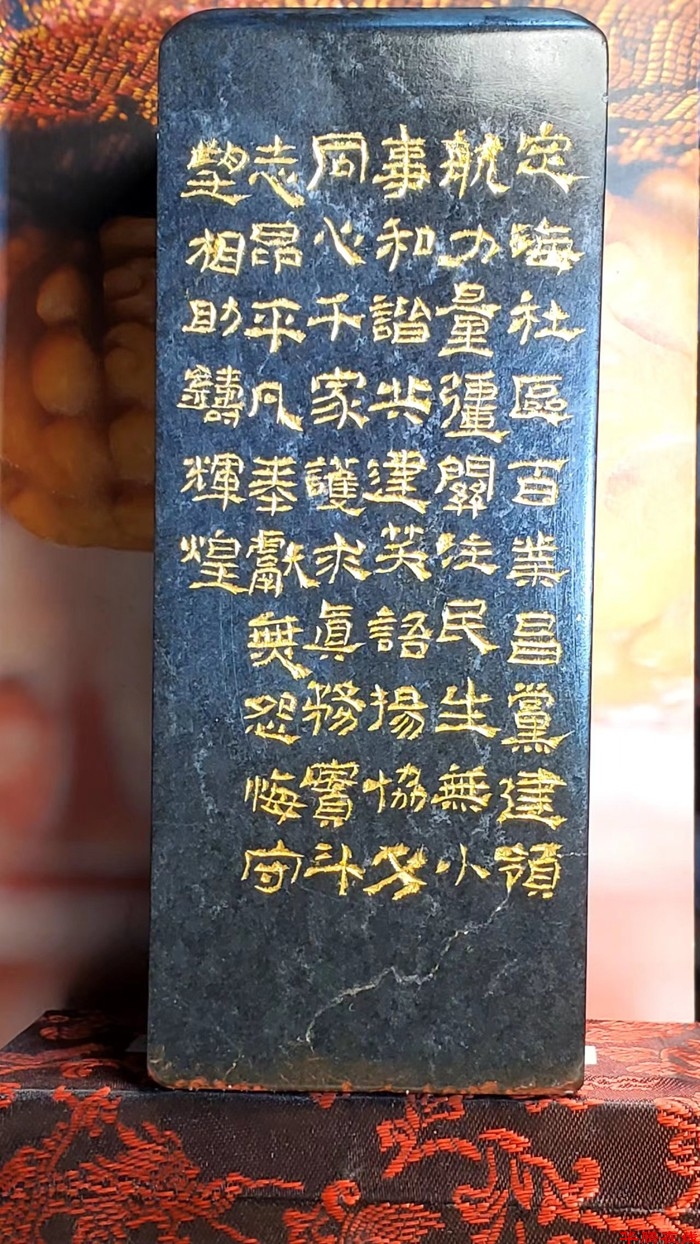 定海社區百業昌黨建領
航力量彊關注民生無小
事和諧共建笑語揚協
同心千家護求眞務實斗
志昂平凡奉獻無怨悔守
望相助鑄輝煌